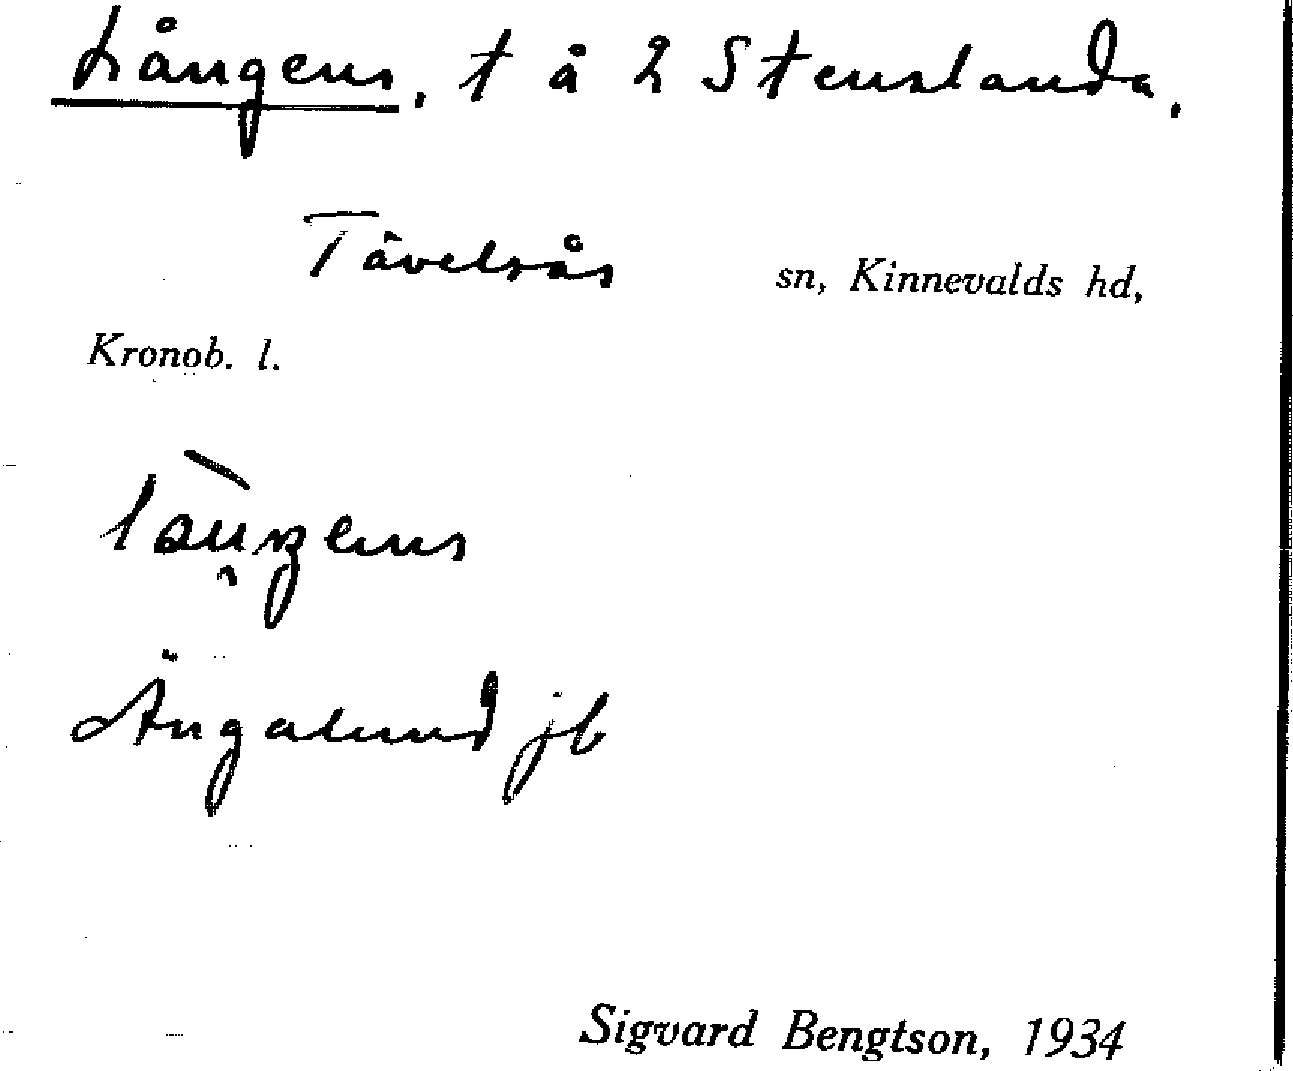 Långens, t å 2 Stenslanda.
Tävelsås sn, Kinnevalds hd,
Kronob. l.
Ängalund jb
Sigvard Bengtson, 1934